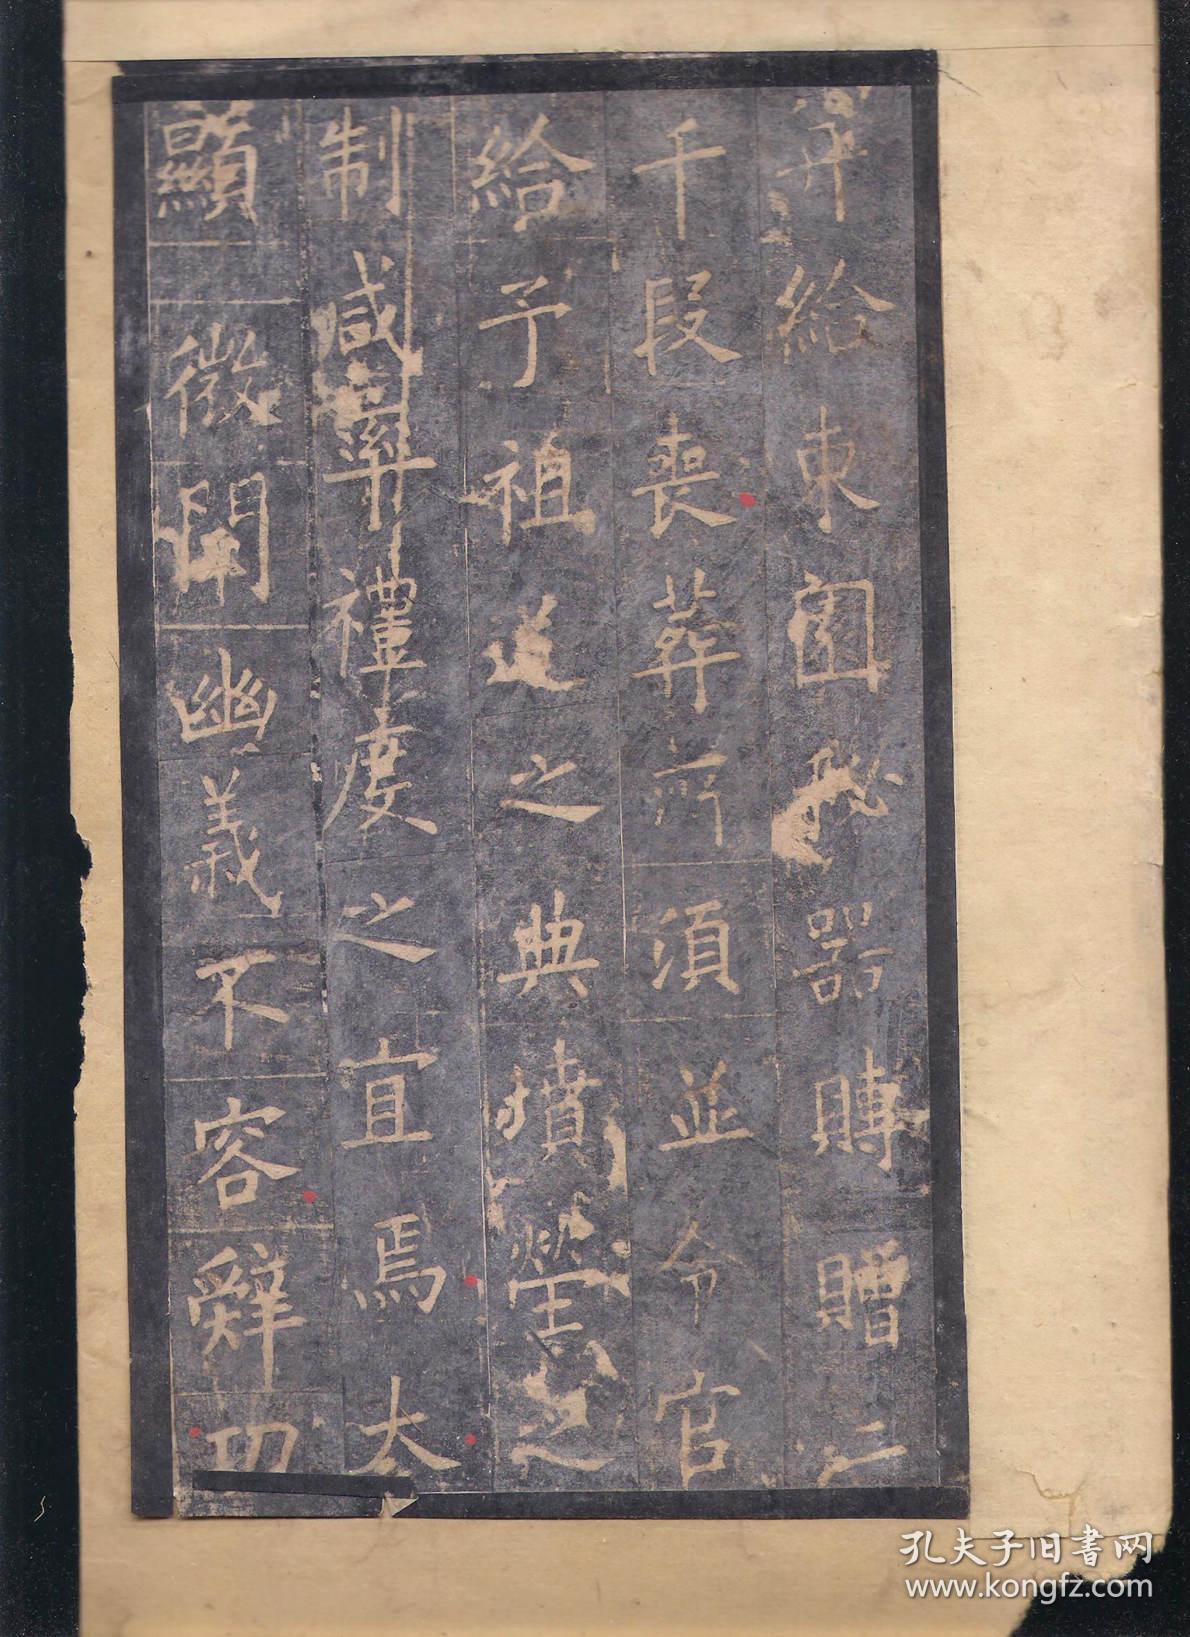 并給東園秘器賻贈二
千段喪葬所須並令官
給予祖道之典墳塋之
制咸率禮度之宜焉太
顯微闡幽義不容辭切
孔夫子旧書网
www.kongfz.com